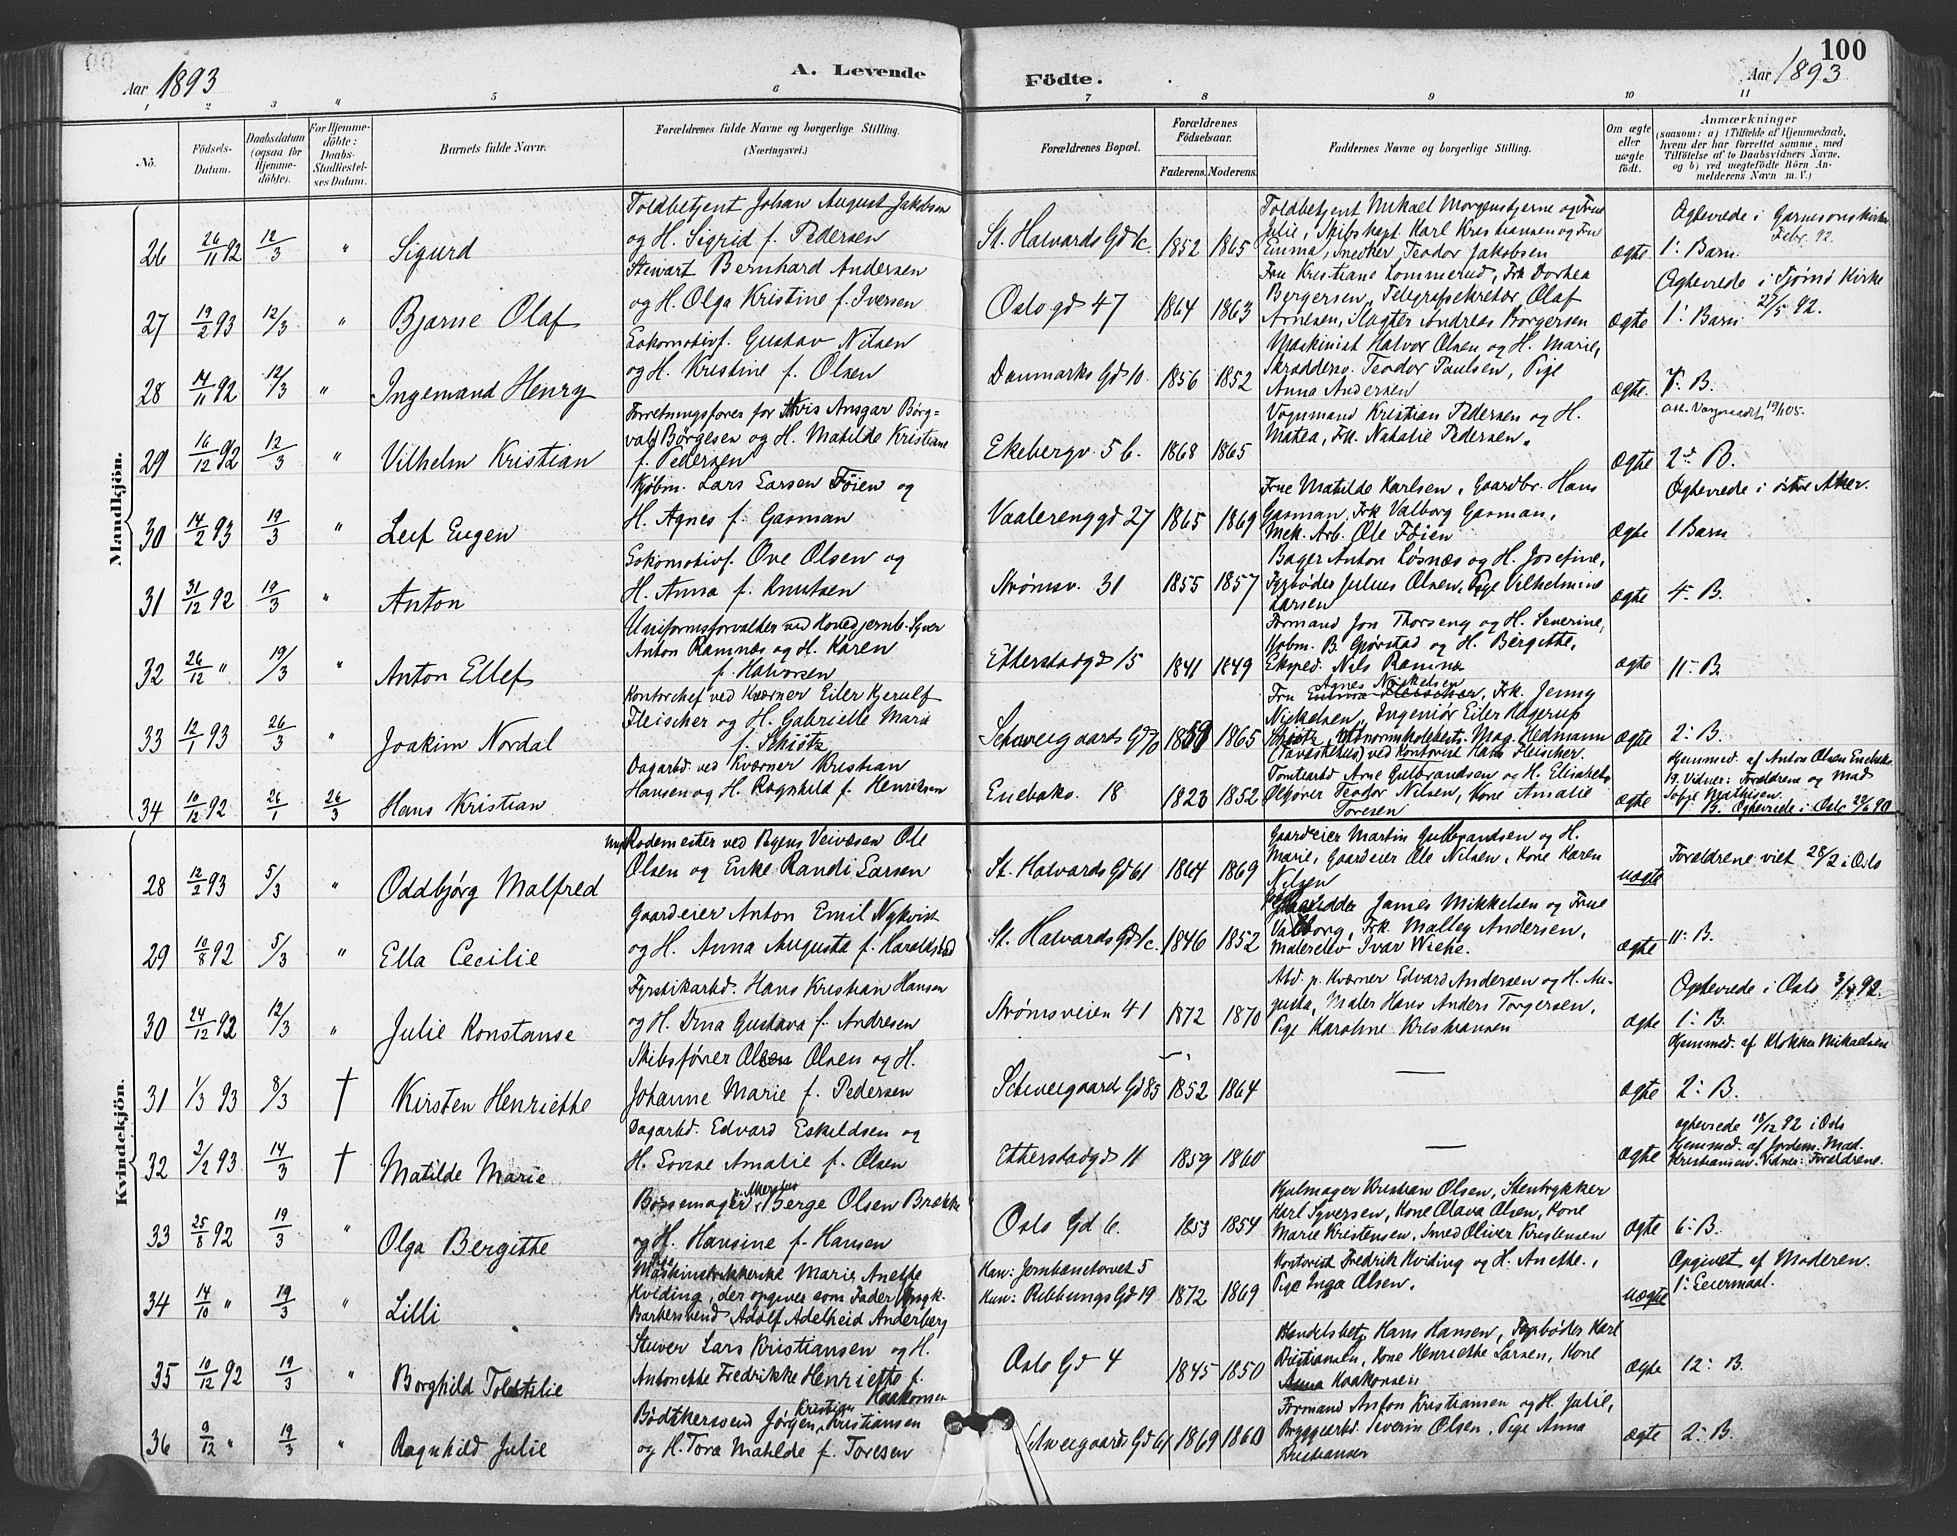 100
Aar 1893
A. Levende
Födte.
Aar 1893
1 2 3 4 5 6 7 8 9 10 11
No.
Födsels-Datum.
Daabsdatum (ogsaa for Hjemmedöbte).
For Hjemmedöbte: Daabs-Stadfæstelses Datum.
Barnets fulde Navn.
Forældrenes fulde Navne og borgerlige Stilling.
(Næringsvei.)
Forældrenes Bopæl.
Forældrenes Födselsaar.
Faderens. Moderens.
Faddernes Navne og borgerlige Stilling.
Om ægte eller uægte födt.
Anmærkninger
(saasom: a) i Tilfælde af Hjemmedaab, hvem der har forrettet samme, med Tilföielse af to Daabsvidners Navne, og b) ved uægtefödte Börn Anmelderens Navn m. V.)
Mandkjön.
26 26/11 92 12/3 " Sigurd
Toldbetjent Johan August Jakobsen
og H. Sigrid f. Pedersen
St. Halvards Gd 1c. 1852 1865
Toldbetjent Mikael Morgenstjerne og Frue
Julie, Skibskapt. Karl Kristiansen og Fru
Emma, Snedker Teodor Jakobsen
ægte
Ogtevrede i Garnisonskirke
Febr. 92.
1: Barn
27 19/2 93 12/3 " Bjarne Olaf
Stewart Bernhard Andersen
og H. Olga Kristine f. Iversen
Oslo gd 47 1864 1863
Fru Kristiane Lommerud, Frk Dorhea
Bergersen, Telegrafsekretær Olaf
Arnesen, Slagter Andreas Borgersen
ægte
Ogtevrede i Tjømø Kirke
27/5 92.
1: Barn
28 14/11 92 12/3 " Ingemand Henry
Lokomotivf. Gustav Nilsen
og H. Kristine f. Olsen
Danmarks Gd 10. 1856 1852
Maskinist Halvor Olsen og H. Marie,
Skrædderv. Teodor Paulsen, Pige
Anna Andersen
ægte.
7. B.
29 16/12 92 12/3 " Vilhelm Kristian
Forretningsfører for Avis Ansgar Børg-
vald Børgesen og H. Matilde Kristiane
f. Pedersen
Ekebergv. 5 b. 1868 1865
Vognmand Kristian Pedersen og H.
Matea, Frk. Nathalie Pedersen.
ægte 2: B.
30 14/2 93 19/3 " Leif Eugen
Kjøbm. Lars Larsen Föien og
H. Agnes f. Gasman
Vaalerenggd 27 1865 1869
Frue Matilde Karlsen, Gaardbr. Hans
Gasman, Frk Valborg Gasman,
Mek. Arb. Ole Föien
ægte
Ogtevrede i östre Aker.
1 Barn
31 31/12 92 19/3 " Anton
Lokomotivf. Ove Olsen og
H. Anna f. Knutsen
Strømsv. 31 1855 1857
Bager Anton Løsnæs og H. Josefine,
Fyrbøder Julius Olsen, Pige Vilhelmine
Larsen
ægte 4: B.
32 26/12 " 19/3 " Anton Ellef
Uniformsforvalter ved Hovedjernb. Syver
Anton Ramnæs og H. Karen
f. Halvorsen
Etterstadgd 15 1841 1849
Formand Jon Thorseng og H. Severine,
Kobm. B. Gjørstad og H. Bergitte,
Eksped. Nils Ramnæ
ægte 11: B
33 12/1 93 26/3 " Joakim Nordal
Kontorchef ved Kværner Eiler Kjerulf
Fleischer og H. Gabrielle Marie
f. Schiötz
Schweigaards Gd 70 1859 1865
Agnes Nickelsen
Fru Emma Fleischer, Frk. Jenny
Nickelsen, Ingeniør Eiler Hagerup
Schiøtz, Hedmann
ved Kontorist Hans Fleischer.
ægte 2: B.
34 10/12 92 26/1 26/3 Hans Kristian
Dagarbd. ved Kværner Kristian
Hansen og H. Ragnhild f. Henriksen
Enebakv. 18 1823 1852
Tomtearbd Arne Gulbrandsen og H. Elisabet,
Ølkjører Teodor Nilsen, Kone Amalie
Toresen
ægte
Hjemmed. af Anton Olsen Enebakv.
19. Vidner: Forældrene og Mad
Sofie Mathisen.
1. B. Ogtevrede i Oslo 90
Kvindekjön.
28 12/2 93 5/3 " Oddbjørg Malfred
Ungk. Rodemester ved Byens Veivæsen Ole
Olsen og Enke Randi Larsen
St. Halvards Gd 61 1864 1869
Gaardeier Martin Gulbrandsen og H.
Marie, Gaardeier Ole Nilsen, Kone Karen
Nilsen
uægte
Forældrene viet 28/2 i Oslo
29 10/8 92 5/3 " Ella Cecilie
Gaardeier Anton Emil Nykvist
og H. Anna Augusta f. Haraldstad
St. Halvards Gd 1c. 1846 1852
James Mikkelsen og Frue
Valborg, Frk. Malley Andersen,
Malerelev Ivar Wiche.
ægte 11: B.
30 24/12 92 12/3 " Julie Konstanse
Fyrstikarbd. Hans Kristian Hansen
og H. Dina Gustava f. Andresen
Strømsveien 41 1872 1870
Abd. p. Kværner Edvard Andersen og H. Au-
gusta, Maler Hans Anders Torgersen,
Pige Karoline Kristiansen
ægte
Ogtevrede i Oslo 3/7 92.
1: B.
31 1/3 93 8/3 † Kirsten Henriette
Skibsfører Olsen Olsen og H.
Johanne Marie f. Pedersen
Schweigaard Gd 85 1852 1864
—
ægte
Hjemmed. af Klokker Mikaelsen
2: B.
32 2/2 93 14/3 † Matilde Marie
Dagarbd. Edvard Eskildsen og
H. Lovise Amalie f. Olsen
Etterstadgd 11 1859 1860
—
ægte
ogtevrede 18/12 92 i Oslo
Hjemmed. af Jordem. Mad.
Kristiansen. Vidner: Forældrene.
33 25/8 92 19/3 " Olga Bergitte
p. Akershus
Børsemager Berge Olsen Brække
og H. Hansine f. Hansen
Oslo Gd 6. 1853 1854
Hjulmager Kristian Olsen, Stentrykker
Karl Syversen, Kone Olava Olsen, Kone
Marie Kristensen, Smed Oliver Kristensen
ægte 6: B.
34 14/10 " 19/3 " Lilli
Pige
Maskinstrikkerske Marie Anette
Kviding, der opgiver som Fader Ungk.
Barbersvend Adolf Adelheid Anderberg
Han: Jernbanetorvet 5
Hun: Ribbungs Gd 19 1872 1869
Kontorist Fredrik Kviding og H. Anette.,
Pige Inga Olsen.
uægte
Opgivet af Moderen.
1: Leiermaal.
35 10/12 92 19/3 " Borghild
Stuver Lars Kristiansen og H.
Antonette Fredrikke Henriette f.
Haakonsen
Oslo Gd 4 1845 1850
Handelsbetj. Hans Hansen, Fyrbøder Karl
Kristiansen, Kone Henriette Larsen, Kone
Anna Haakonsen
ægte 12: B.
36 9/12 " 19/3 " Ragnhild Julie
Kristian
Bødtkersvend Jørgen Kristiansen
og H. Tora Matilde f. Toresen
Schweigaards Gd 61 1869 1860
Formand Anton Kristiansen og H. Julie,
Bryggearbd. Severin Olsen, Pige Anna
Kristiansen
ægte 2: B.